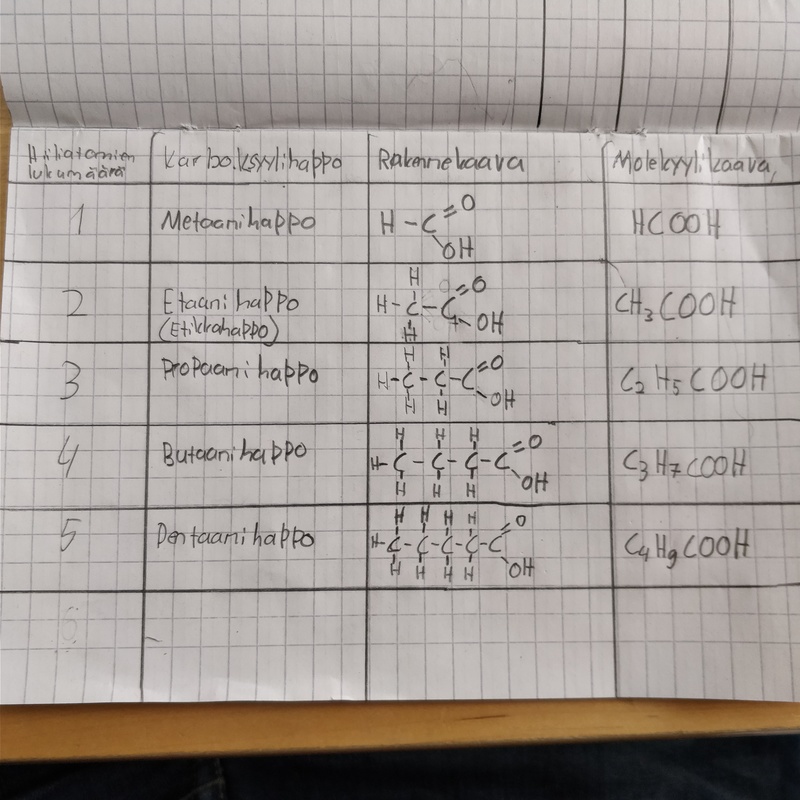 Hiiliatomien lukumäärä Karboksyylihappo Rakennekaava Molekyylikaava
1 Metaanihappo H-C=O OH HCOOH
2 Etaanihappo (Etikkahappo) H H-C-C=O H OH CH₃COOH
3 Propaanihappo H H H-C-C-C=O H H OH C₂H₅COOH
4 Butaanihappo H H H H-C-C-C-C=O H H H OH C₃H₇COOH
5 Pentaanihappo H H H H H-C-C-C-C-C=O H H H H OH C₄H₉COOH
6